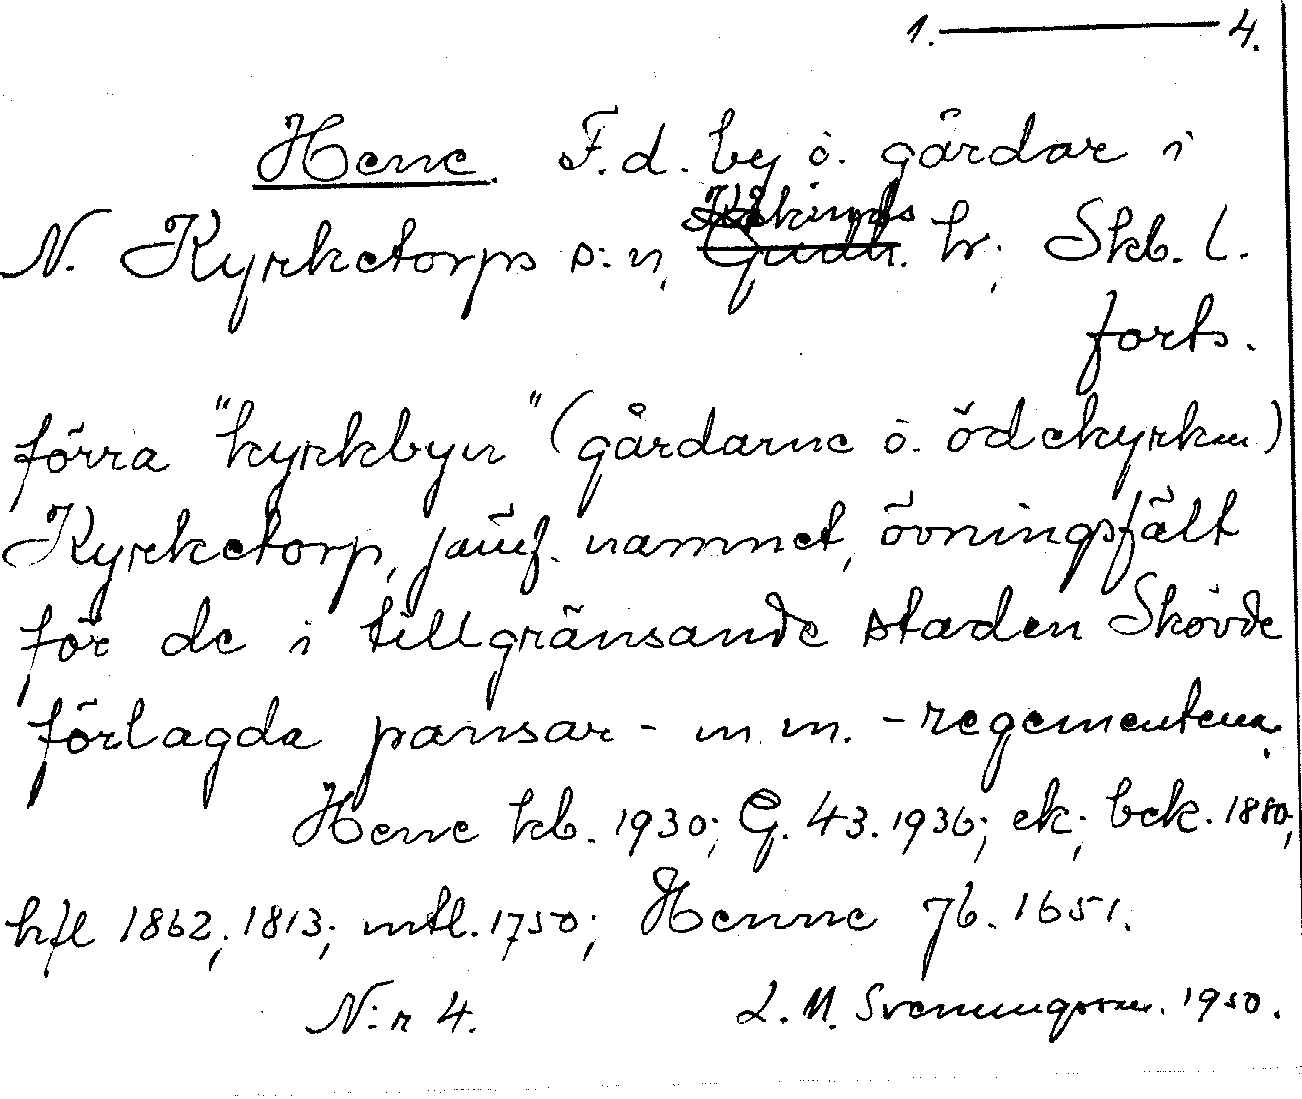 1. — 4.
Hene. F.d. by o. gårdar i
Kåkinds
N. Kyrketorps s:n, Gudh. hr; Skb. l.
forts.
förra "kyrkbyn" (gårdarne o. ödekyrkan)
Kyrketorp, jämf. namnet, övningsfält
för de i tillgränsande staden Skövde
förlagda pansar- m.m. -regementena.
Hene kb. 1930; G. 43. 1936; ek; bek. 1880;
hfl 1862, 1813; mtl. 1750; Henne Jb. 1651.
N:r 4. L. M. Svenungsson. 1950.